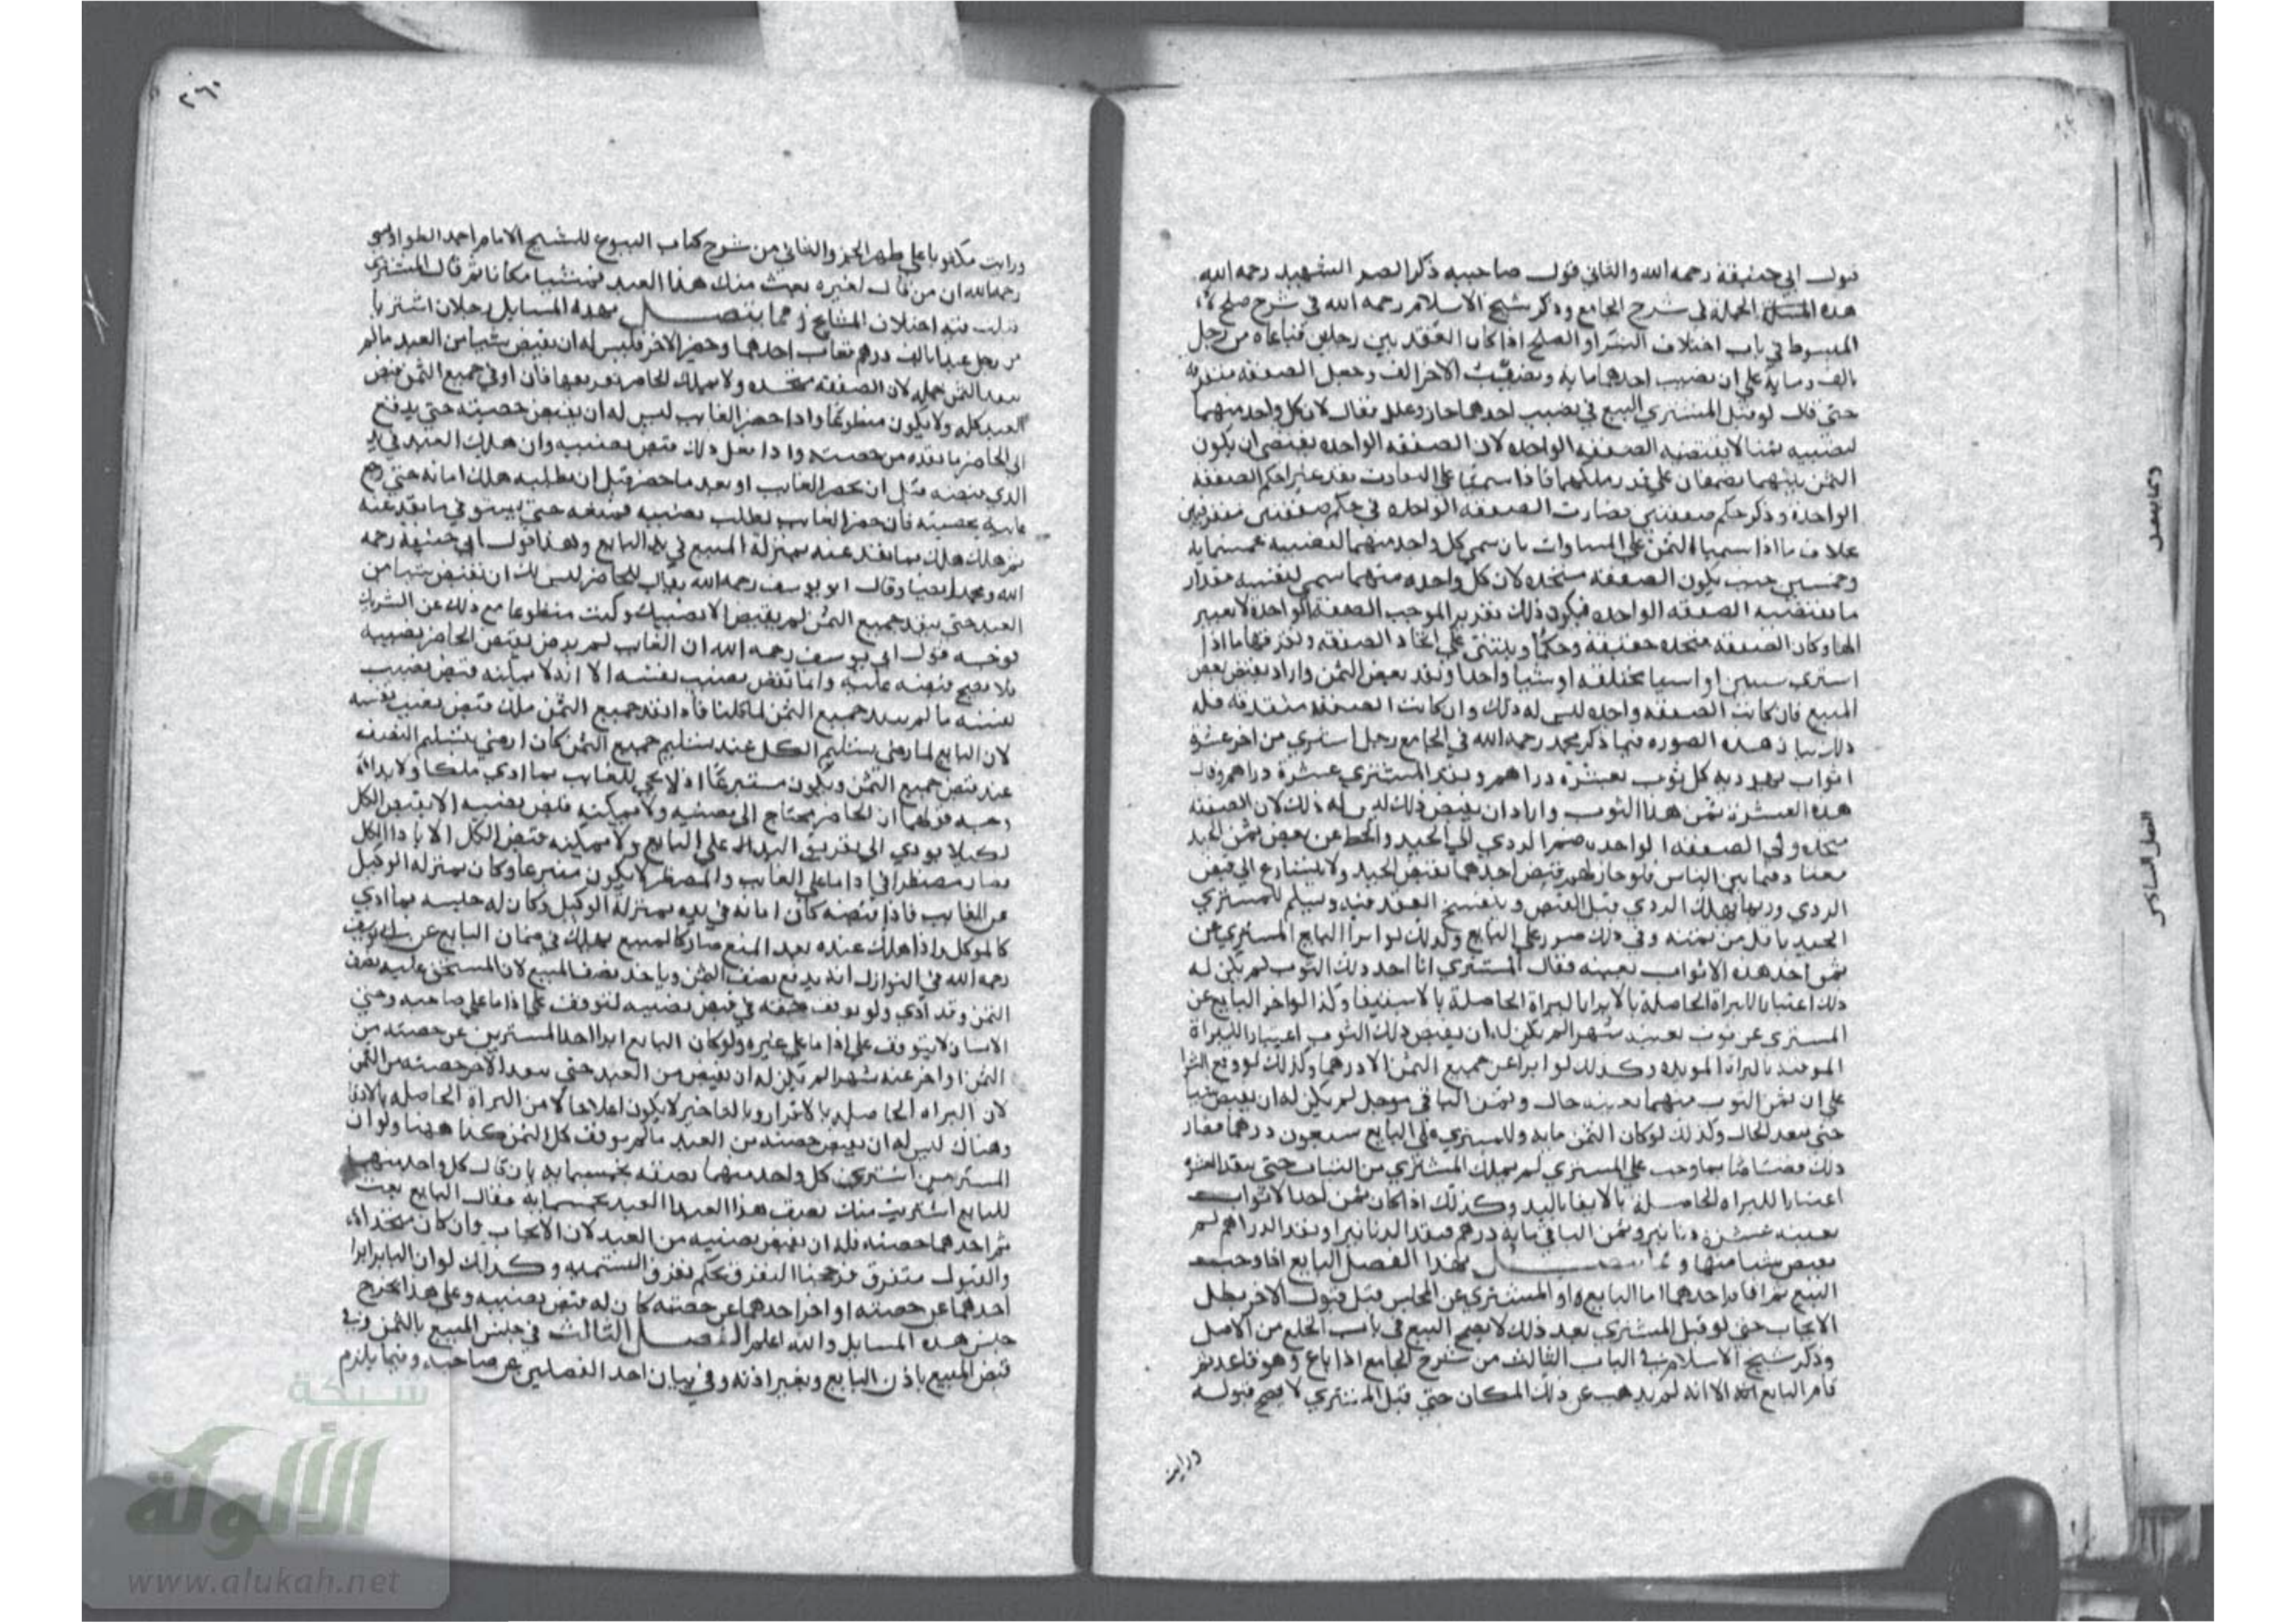 قول ابي حنيفة رحمه الله والثاني قول صاحبيه ذكر الصدر الشهيد رحمه الله
هذه المسئلة الجملة في شرح الجامع وذكر شيخ الاسلام رحمه الله في شرح صلح
المبسوط في باب اختلاف الشراء والصلح اذا كان العقد بين رجلين فباعاه من رجل
بالف ومايه على ان نصيب احدهما مايه ونصيب الاخر الف وجعل الصفقه متفرقه
حتى قال لو قبل المشتري البيع في نصيب احدهما جاز وعلل فقال لان كل واحد منهما
لنصيبه ثمنا لا يقتضيه الصفقه الواحده لان الصفقه الواحده يقتضي ان يكون
الثمن بينهما نصفان على قدر ملكهما فاذا سميا على التفاوت فقد غيرا حكم الصفقة
الواحدة وذكر حكم صفقتين فصارت الصفقه الواحده في حكم صفقتين متفرقتين
بخلاف ما اذا سميا الثمن على المساوات بان سمى كل واحد منهما لنصيبه خمسمايه
وخمسين حيث يكون الصفقة متحده لان كل واحد منهما سمى لنصيبه مقدار
ما يقتضيه الصفقه الواحده فيكون ذلك تقرير الموجب الصفقة الواحدة لا تغيير
لها وكان الصفقة متحده حقيقة وحكما ويبتنى على اتحاد الصفقه وتفرقها ما اذا
اشترى شيئين او اشيا مختلفه او شيا واحدا ونقد بعض الثمن واراد بقبض بعض
المبيع فان كانت الصفقه واحده ليس له ذلك وان كانت الصفقه متفرقه فله
ذلك بيان هذه الصوره فيما ذكر محمد رحمه الله في الجامع رجل اشترى من اخر عشرة
اثواب يهوديه كل ثوب بعشرة دراهم ونقد المشتري عشرة دراهم وقال
هذه العشرة ثمن هذا الثوب واراد ان يقبض ذلك ليس له ذلك لان الصفقه
متحده وفي الصفقه الواحده ضم الردي الى الجيد والحط عن بعض ثمن الجيد
معتاد فيما بين الناس فلو جاز لهم قبض احدهما يقبض الجيد ولا يتسارع الى قبض
الردي وربما يهلك الردي قبل القبض وينفسخ العقد فيه ويسلم للمشتري
الجيد باقل من ثمنه وفي ذلك ضرر على البايع وكذلك لو ابرا البايع المشتري عن
ثمن احد هذه الاثواب بعينه فقال المشتري انا اخذ ذلك الثوب لم يكن له
ذلك اعتبارا للبراة الحاصلة بالابرا بالبراة الحاصلة بالاستيفا وكذا لو اخر البايع عن
المشتري عن ثوب بعينه شهرا لم يكن له ان يقبض ذلك الثوب اعتبارا للبراة
الموقته بالبراة الموبده وكذلك لو ابرا عن جميع الثمن الا درهما وكذلك لو وقع الشرا
على ان ثمن الثوب منهما بعينه حال وثمن الباقي موجل لم يكن له ان يقبض شيا
حتى ينقد الحال وكذلك لو كان الثمن مايه وللمشتري على البايع سبعون درهما فصار
ذلك قصاصا بما وجب على المشتري لم يملك المشتري من الثياب حتى ينقد العشرة
اعتبارا للبراه الحاصلة بالايفا باليد وكذلك اذا كان ثمن احد الاثواب
بعينه عشرة دنانير وثمن الباقي مايه درهم فنقد الدنانير او نقد الدراهم لم
يقبض شيا منها ومما يتصل بهذا الفصل البايع اذا وجب
البيع ثم قام احدهما اما البايع او المشتري عن المجلس قبل قبول الاخر بطل
الايجاب حتى لو قبل المشتري بعد ذلك لا يصح البيع في باب الخلع من الاصل
وذكر شيخ الاسلام في الباب الثالث من شرح الجامع اذا باع وهو قاعد ثم
قام البايع الا انه لم يذهب عن ذلك المكان حتى قبل المشتري لا يصح قبوله
ورايت
ومما يتصل
الفصل السادس
٢٦٠
ورايت مكتوبا على ظهر الجزو الثاني من شرح كتاب البيوع للشيخ الامام احمد الطواويسي
رحمه الله ان من قال لغيره بعت منك هذا العبد ثم مشيا مكانا ثم قال المشتري
قبلت فيه اختلاف المشايخ ومما يتصل بهذه المسايل رجلان اشتريا
من رجل عبدا بالف درهم فغاب احدهما وحضر الاخر فليس له ان يقبض شيا من العبد ما لم
ينقد الثمن جمله لان الصفقه متحده ولا يملك الحاضر تفريقها فان اوفى جميع الثمن يقبض
العبد كله ولا يكون متطوعا واذا حضر الغايب ليس له ان يقبض حصته حتى يدفع
الى الحاضر ما نقده من حصته واذا فعل ذلك قبض نصيبه وان هلك العبد في يد
الذي قبضه قبل ان يحضر الغايب او بعد ما حضر قبل ان يطلبه هلك امانه حتى رجع
عليه بحصته فان حضر الغايب يطلب نصيبه فمنعه حتى يستوفي ما نقد عنه
ثم هلك هلك بما نقد عنه بمنزلة المبيع في يد البايع وهذا قول ابي حنيفة رحمه
الله ومحمد ايضا وقال ابو يوسف رحمه الله يقال للحاضر ليس لك ان تقبض شيا من
العبد حتى ينقد جميع الثمن لم يقبض الا نصيبك وكنت متطوعا مع ذلك عن الشريك
توجيه قول ابي يوسف رحمه الله ان الغايب لم يرض بقبض الحاضر نصيبه
فلا يصح قبضه عليه وانما يقبض نصيب نفسه الا انه لا يمكنه قبض نصيب
نفسه ما لم ينقد جميع الثمن لما قلنا فاذا نقد جميع الثمن ملك قبض نصيب نفسه
لان البايع لما رضي بتسليم الكل عند تسليم جميع الثمن كان ارضى بتسليم النصف
عند قبض جميع الثمن ويكون متبرعا اذ لا يحي للغايب بما ادى ملكا ولا يدا
وجه قولهما ان الحاضر يحتاج الى نصيبه ولا يمكنه قبض نصيبه الا بقبض الكل
لكيلا يودي الى تفريق اليد على البايع ولا يمكنه قبض الكل الا بادا الكل
فصار مضطرا في ادا ما على الغايب والمضطر لا يكون متبرعا وكان بمنزله الوكيل
عن الغايب فاذا قبضه كان امانه في يده بمنزلة الوكيل وكان له حبسه بما ادى
كالموكل واذا هلك عنده بعد المنع صار كالمبيع يهلك في ضمان البايع عن ابي يوسف
رحمه الله في النوازل انه يدفع نصف الثمن وياخذ نصف المبيع لان المستحق عليه نصف
الثمن وقد ادى ولو توقف حقه في قبض نصيبه لتوقف على ادا ما على صاحبه وحق
الانسان لا يتوقف على ادا ما على غيره ولو كان البايع ابرا احد المشتريين عن حصته من
الثمن او اخر عنه شهرا لم يكن له ان يقبض من العبد حتى ينقد الاخر حصته من الثمن
لان البراه الحاصله بالابرا وبالتاخير لا يكون اعلا حالا من البراة الحاصله بالايفا
وهناك ليس له ان يقبض حصته من العبد ما لم يوف كل الثمن فكذا ههنا ولو ان
المشتريين اشترى كل واحد منهما نصفه بخمسمايه بان قال كل واحد منهما
للبايع اشتريت منك نصف هذا العبد بخمسمايه فقال البايع بعت
ثم احدهما حصته فله ان يقبض نصيبه من العبد لان الايجاب وان كان متحدا
والقبول متفرق فرجحنا التفرق بحكم تفرق التسميه وكذلك لو ان البايع ابرا
احدهما عن حصته او اخر احدهما عن حصته كان له قبض نصيبه وعلى هذا يخرج
جنس هذه المسايل والله اعلم الفصل الثالث في حبس المبيع بالثمن وفي
قبض المبيع باذن البايع وبغير اذنه وفي بيان احد الفصلين عن صاحبه وفيما يلزم
شبكة
الألوكة
www.alukah.net